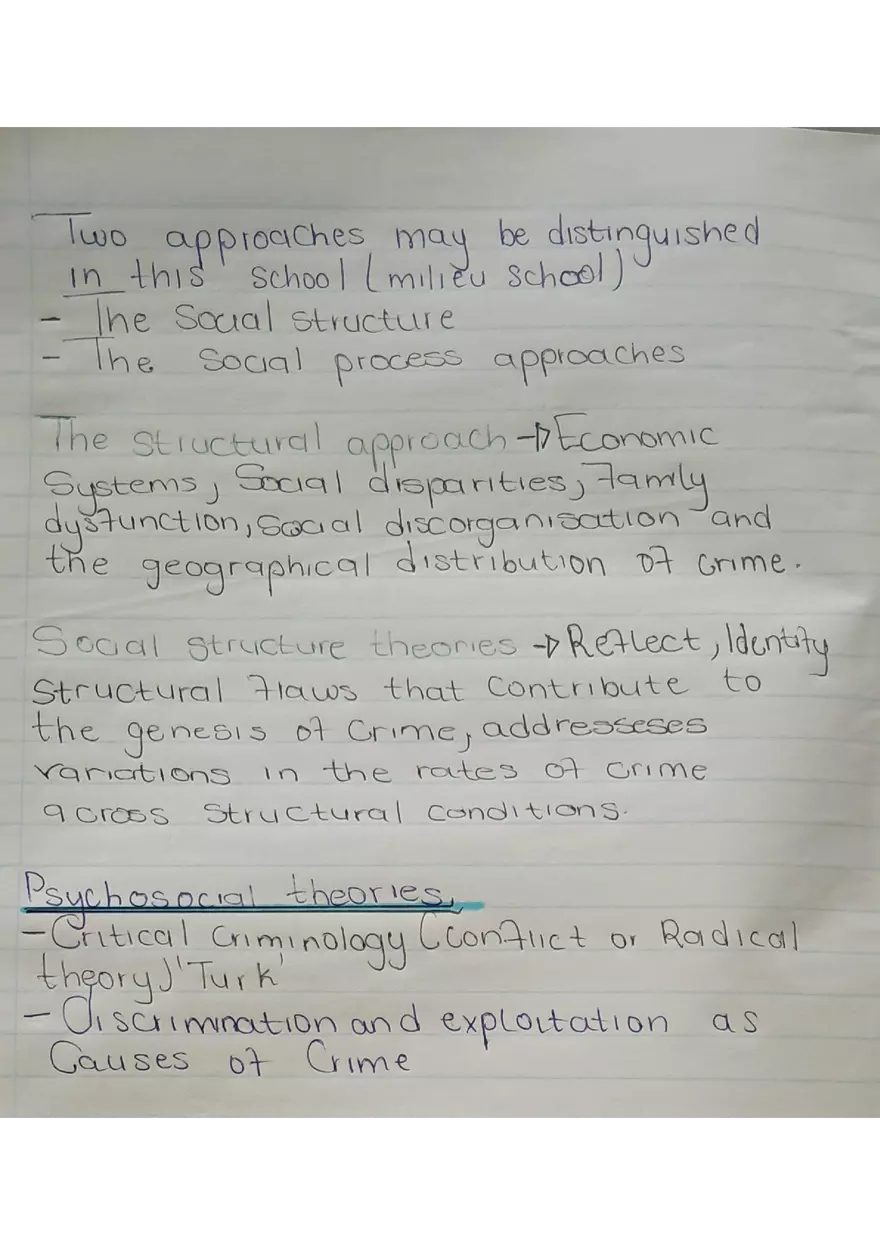 Two approaches may be distinguished
in this school (milieu school)
- The Social structure
- The Social process approaches
The structural approach → Economic
Systems, Social disparities, Family
dysfunction, social discorganisation and
the geographical distribution of crime.
Social structure theories → Reflect, Identify
structural flaws that contribute to
the genesis of crime, addresseses
variations in the rates of crime
across structural conditions.
Psychosocial theories
- Critical Criminology (conflict or Radical
theory) 'Turk'
- Discrimination and exploitation as
Causes of Crime